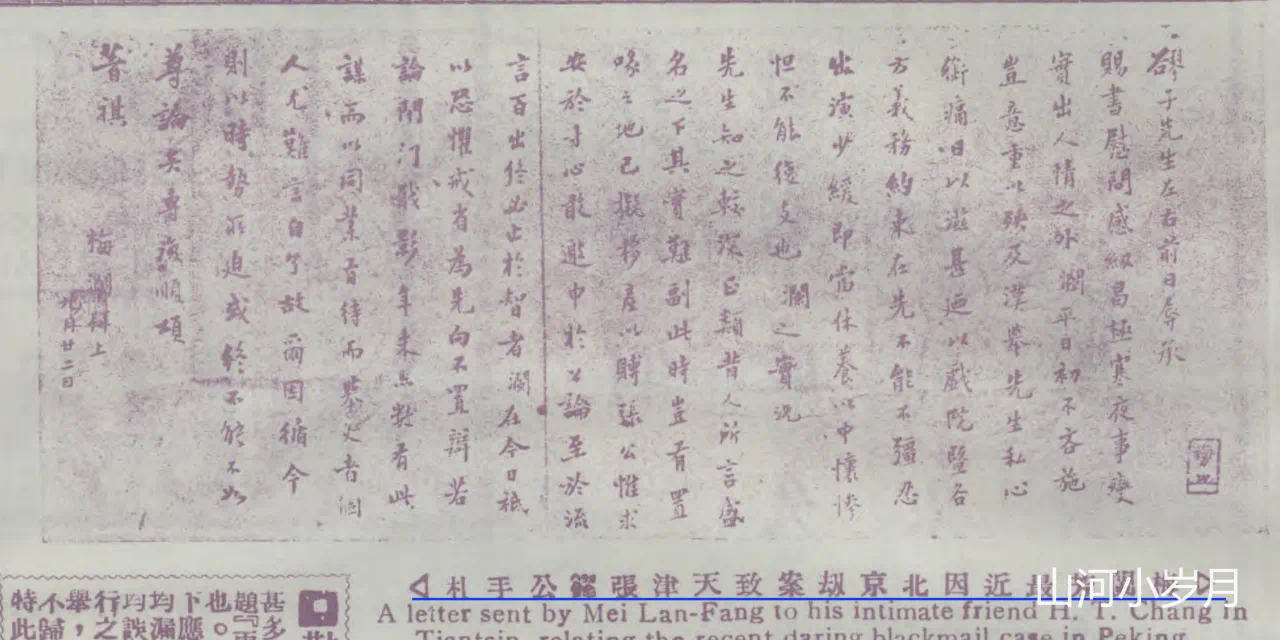 豂子先生左右前日辱承
賜書慰問感紉曷極寒夜事變
實出人情之外瀾平日初不吝施
豈意重以殃及漢舉先生私心
銜痛日以滋甚迺以戲院暨各
方義務約束在先不能不彊忍
出演少緩即當休養以中懷慘
怛不能復支也瀾之實況
先生知之較深正類昔人所言盛
名之下其實難副此時豈有置
喙之地已擬移產以賻張公惟求
安於寸心敢邀申於公論至於流
言百出終必止於智者瀾在今日祗
以恐懼戒省為先向不置辯若
論閉門戢影年來亦數有此
謀而以同業有待而舉火者
人尤難言自了故爾因循今
則以時勢所迫或終不能不如
尊論矣專復順頌
著祺
梅瀾拜上
月廿二日
最近因北京劫案致天津張豂公手札
A letter sent by Mei Lan-Fang to his intimate friend H. T. Chang in
Tientsin, relating the recent daring blackmail case in Peking
甚多
題『再
也。
下應
均漏
均談
行之
舉，
不歸
特此
山河小岁月